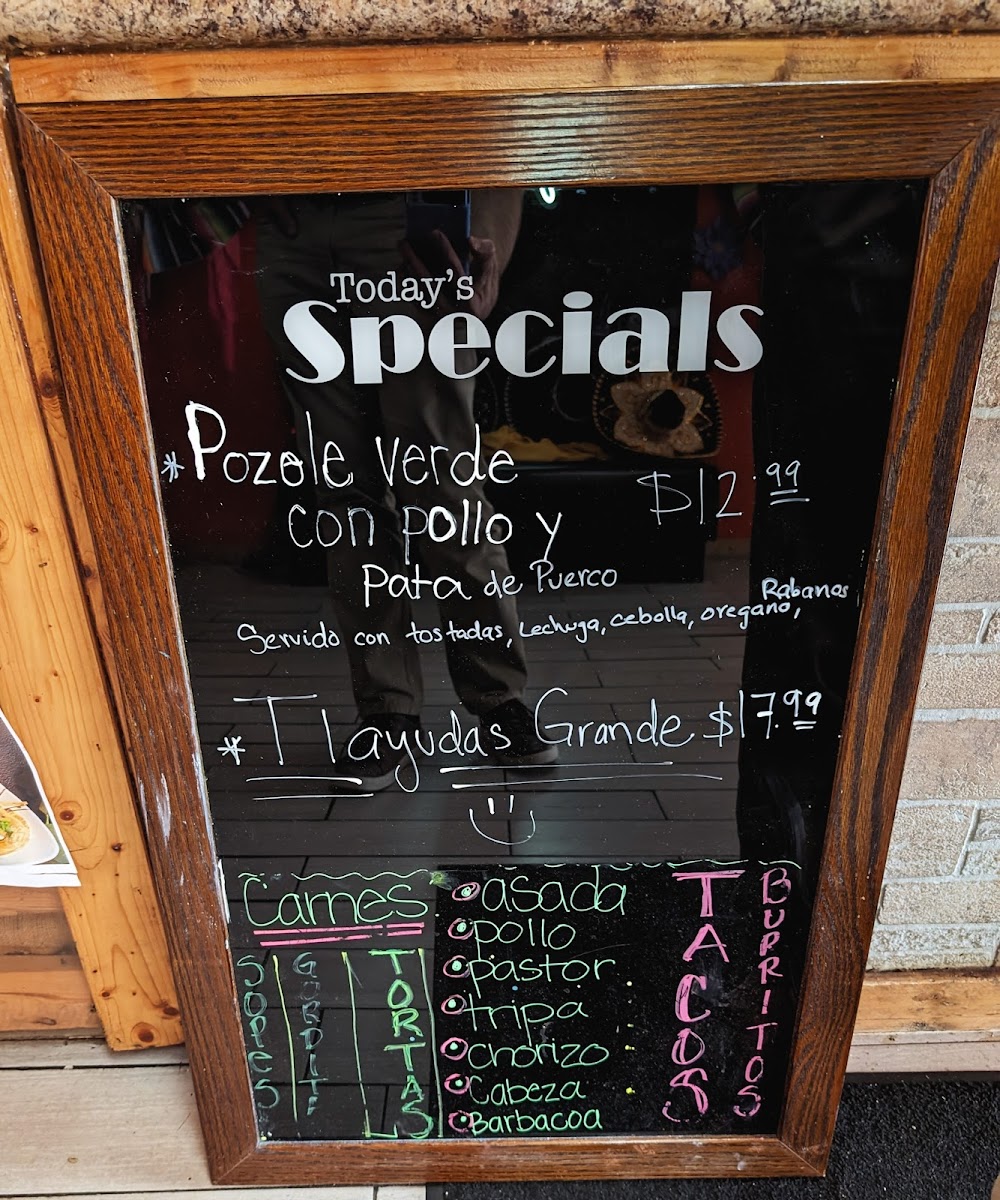 Today's
Specials
*Pozole verde
con pollo y
Pata de Puerco
$12.99
Servido con tostadas, Lechuga, cebolla, oregano, Rabanos
*Tlayudas Grande $17.99
Carnes
SOPES
TORTAS
asada
pollo
pastor
tripa
chorizo
Cabeza
Barbacoa
TACOS
BURRITOS